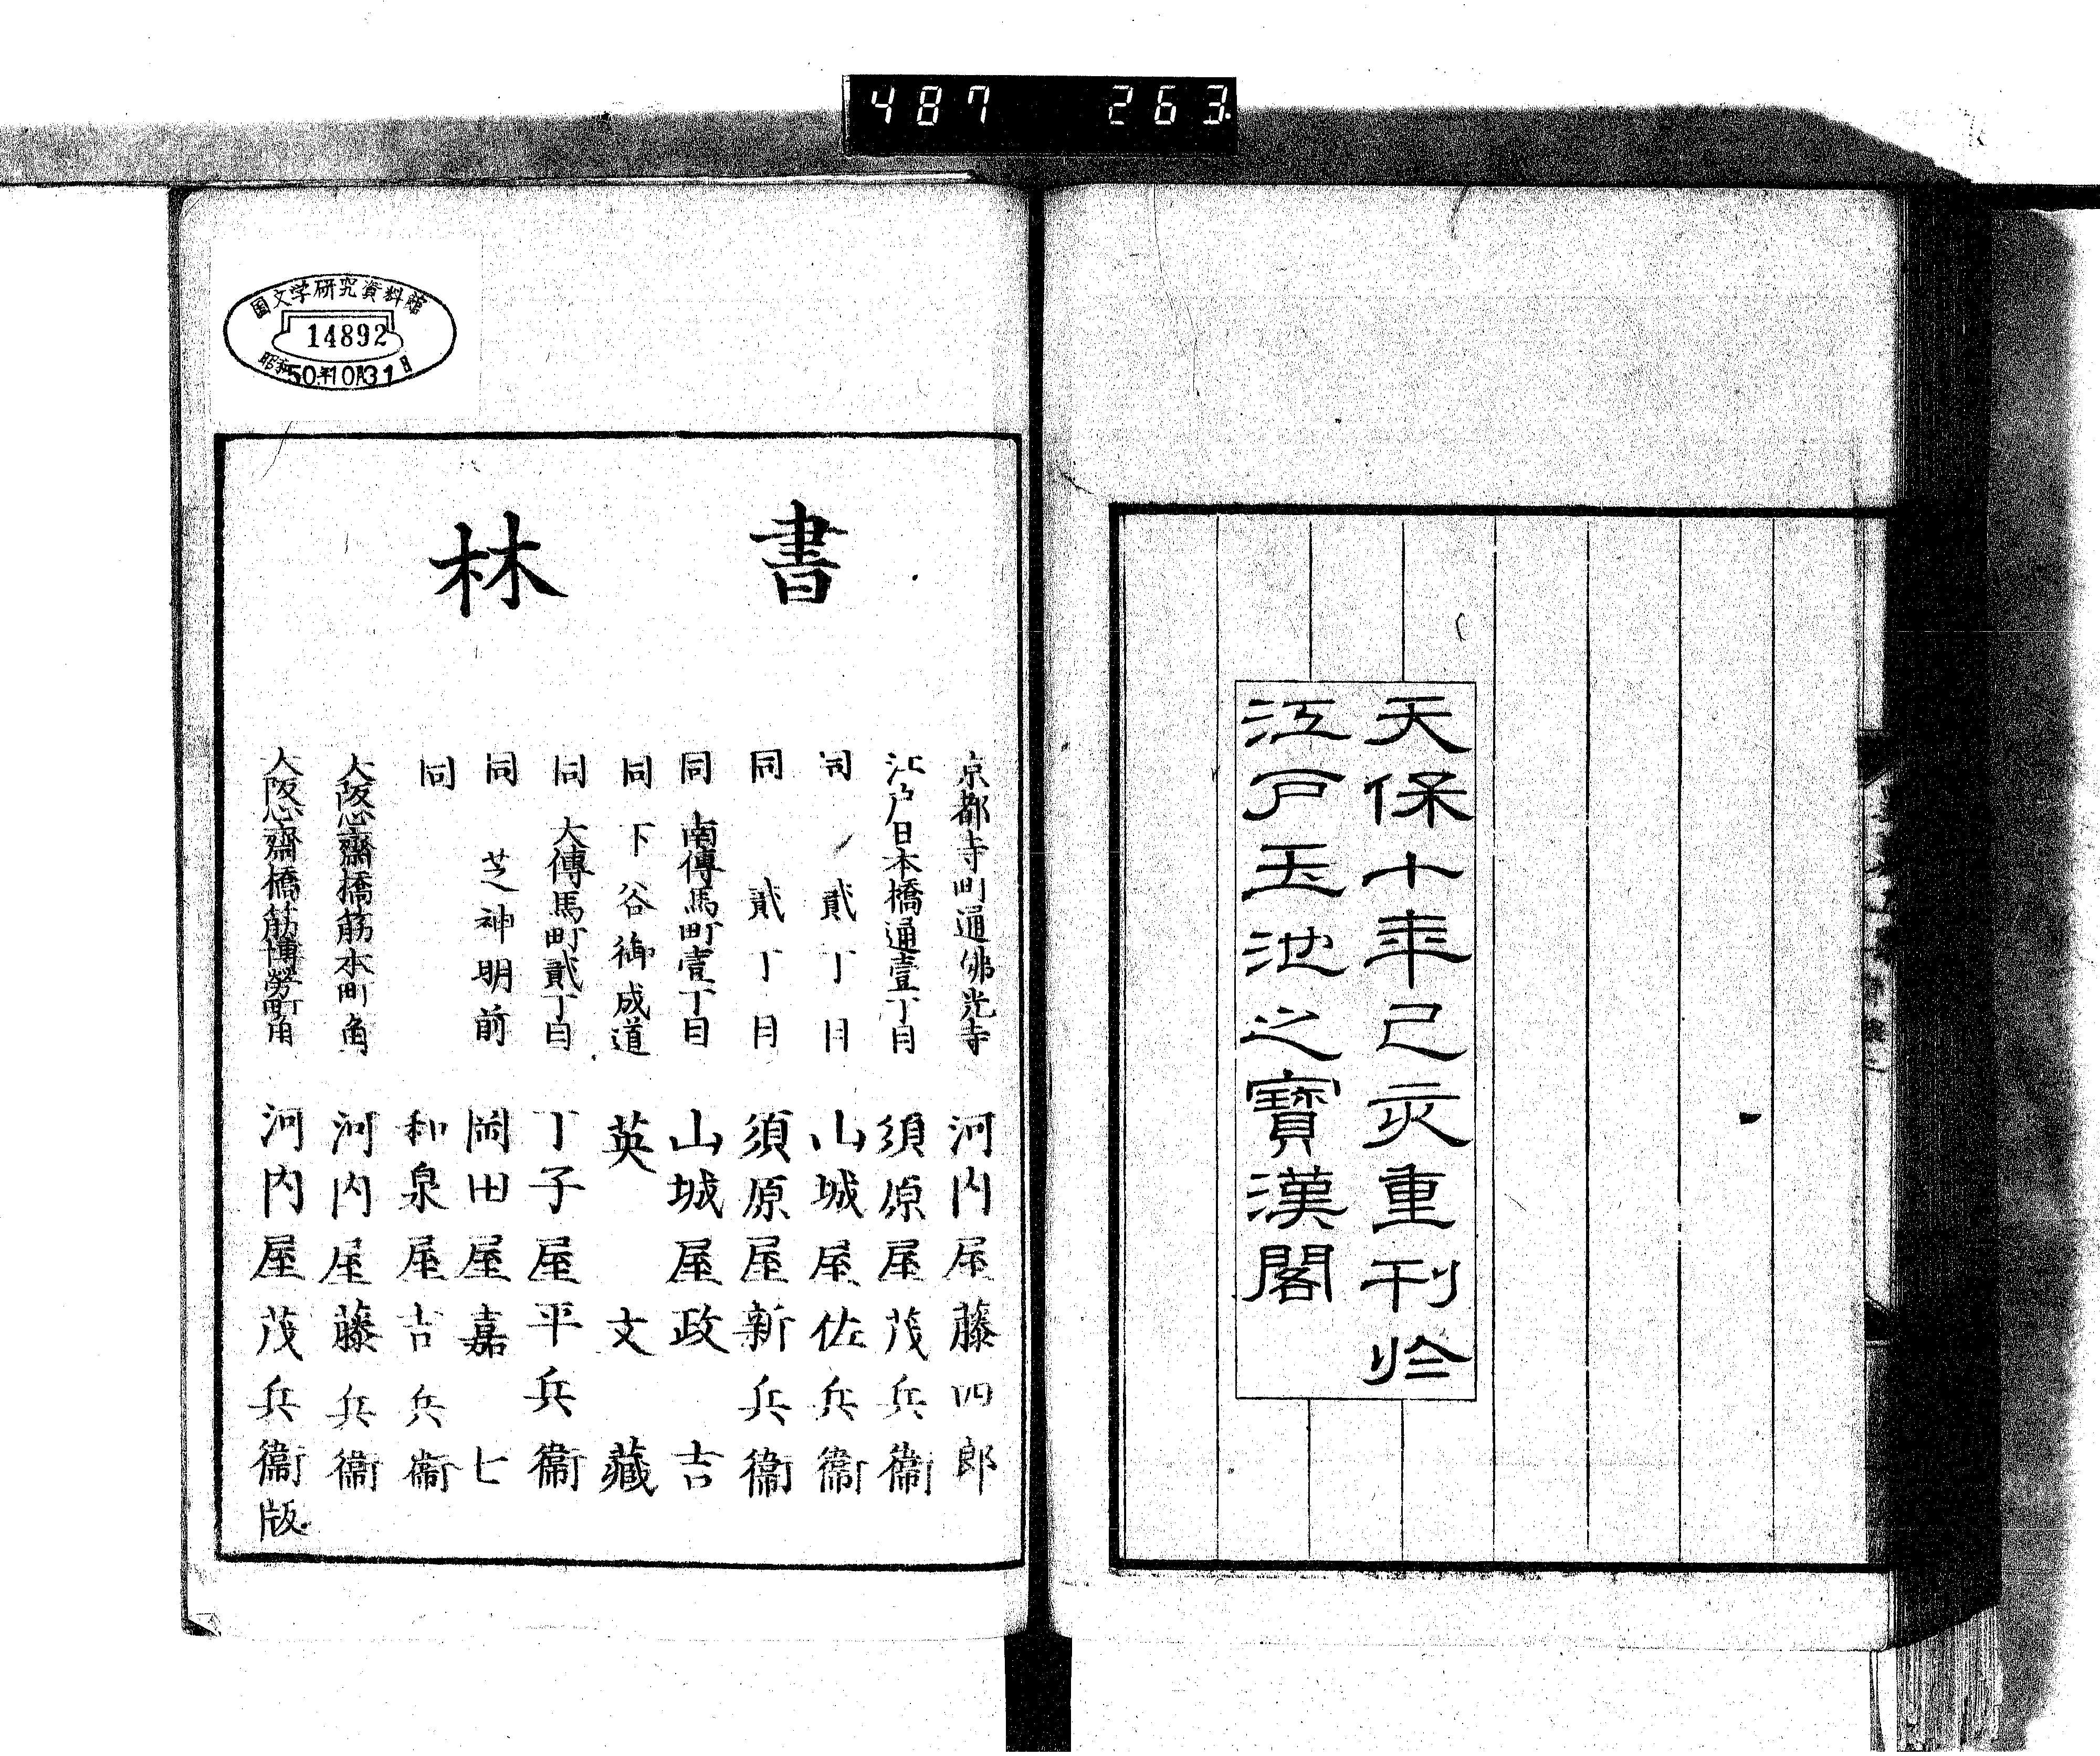 487 263
天保十年己亥重刊於
江戸玉池之寶漢閣
国文学研究資料館
14892
昭和50年10月31日
書林
京都寺町通佛光寺 河内屋藤四郎
江戸日本橋通壹丁目 須原屋茂兵衞
同 貳丁目 山城屋佐兵衞
同 貳丁目 須原屋新兵衞
同 南傳馬町壹丁目 山城屋政吉
同 下谷御成道 英文藏
同 大傳馬町貳丁目 丁子屋平兵衞
同 芝神明前 岡田屋嘉七
同 和泉屋吉兵衞
大阪心齋橋筋本町角 河内屋藤兵衞
大阪心齋橋筋博勞町角 河内屋茂兵衞版